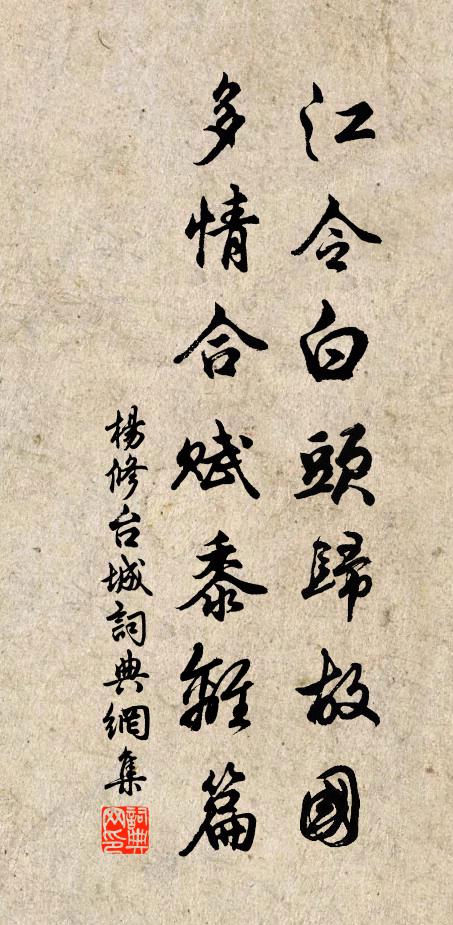 江令白頭歸故國
多情合賦黍離篇
楊修台城詞典網集
詞典網印